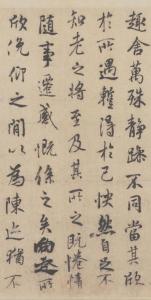 趣舍萬殊靜躁不同當其欣
於所遇蹔得於己怏然自足不
知老之將至及其所之既惓情
隨事遷感慨係之矣向之所
欣俛仰之間以為陳迹猶不